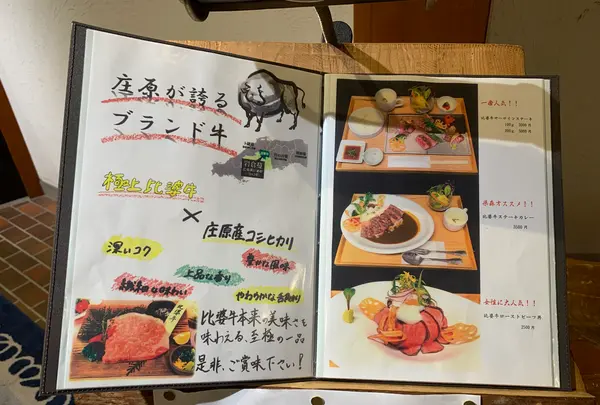 庄原が誇る
ブランド牛
極上比婆牛
×
庄原産コシヒカリ
深いコク
豊かな風味
上品な香り
繊細な味わい
やわらかな舌触り
比婆牛本来の美味さを
味わえる、至極の一品
是非、ご賞味下さい!
一番人気!!
比婆牛サーロインステーキ
店長オススメ!!
比婆牛ステーキカレー
女性に大人気!!
比婆牛ローストビーフ丼
2500円